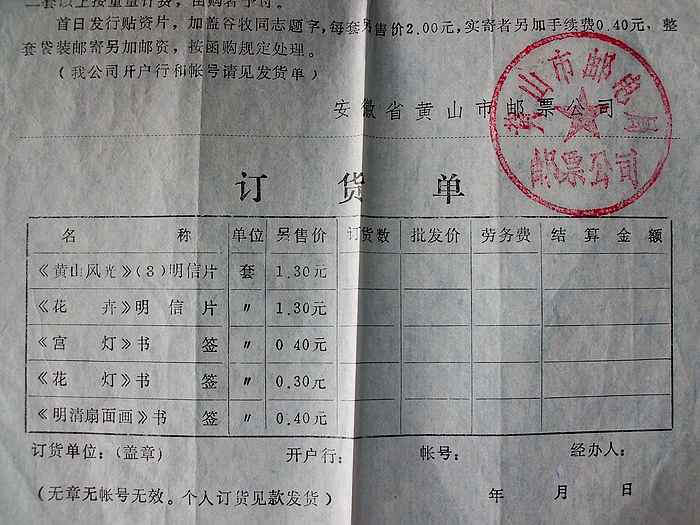 二套以上按重量计费，由购者予付。
首日发行贴资片，加盖谷牧同志题字，每套另售价2.00元，实寄者另加手续费0.40元，整
套袋装邮寄另加邮资，按函购规定处理。
（我公司开户行和帐号请见发货单）
安徽省黄山市邮票公司
黄山市邮电局
邮票公司
订货单
名称 单位 另售价 订货数 批发价 劳务费 结算金额
《黄山风光》(3)明信片 套 1.30元
《花卉》明信片 〃 1.30元
《宫灯》书签 〃 0 40元
《花灯》书签 〃 0.30元
《明清扇面画》书签 〃 0.40元
订货单位：(盖章) 开户行： 帐号： 经办人：
(无章无帐号无效。个人订货见款发货) 年 月 日